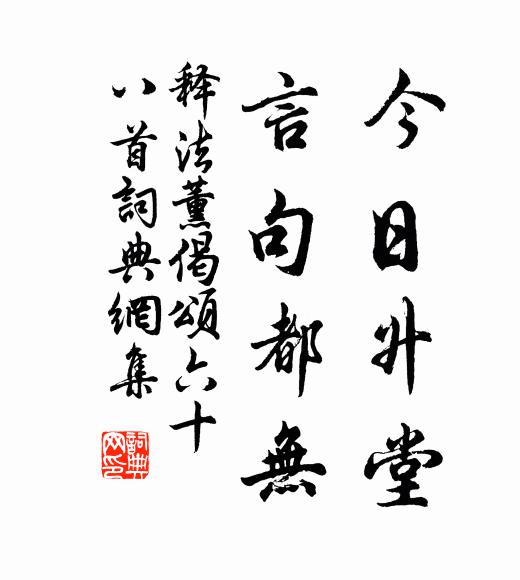 今日升堂
言句都無
释法薰偈頌六十
八首詞典網集
詞典
网印